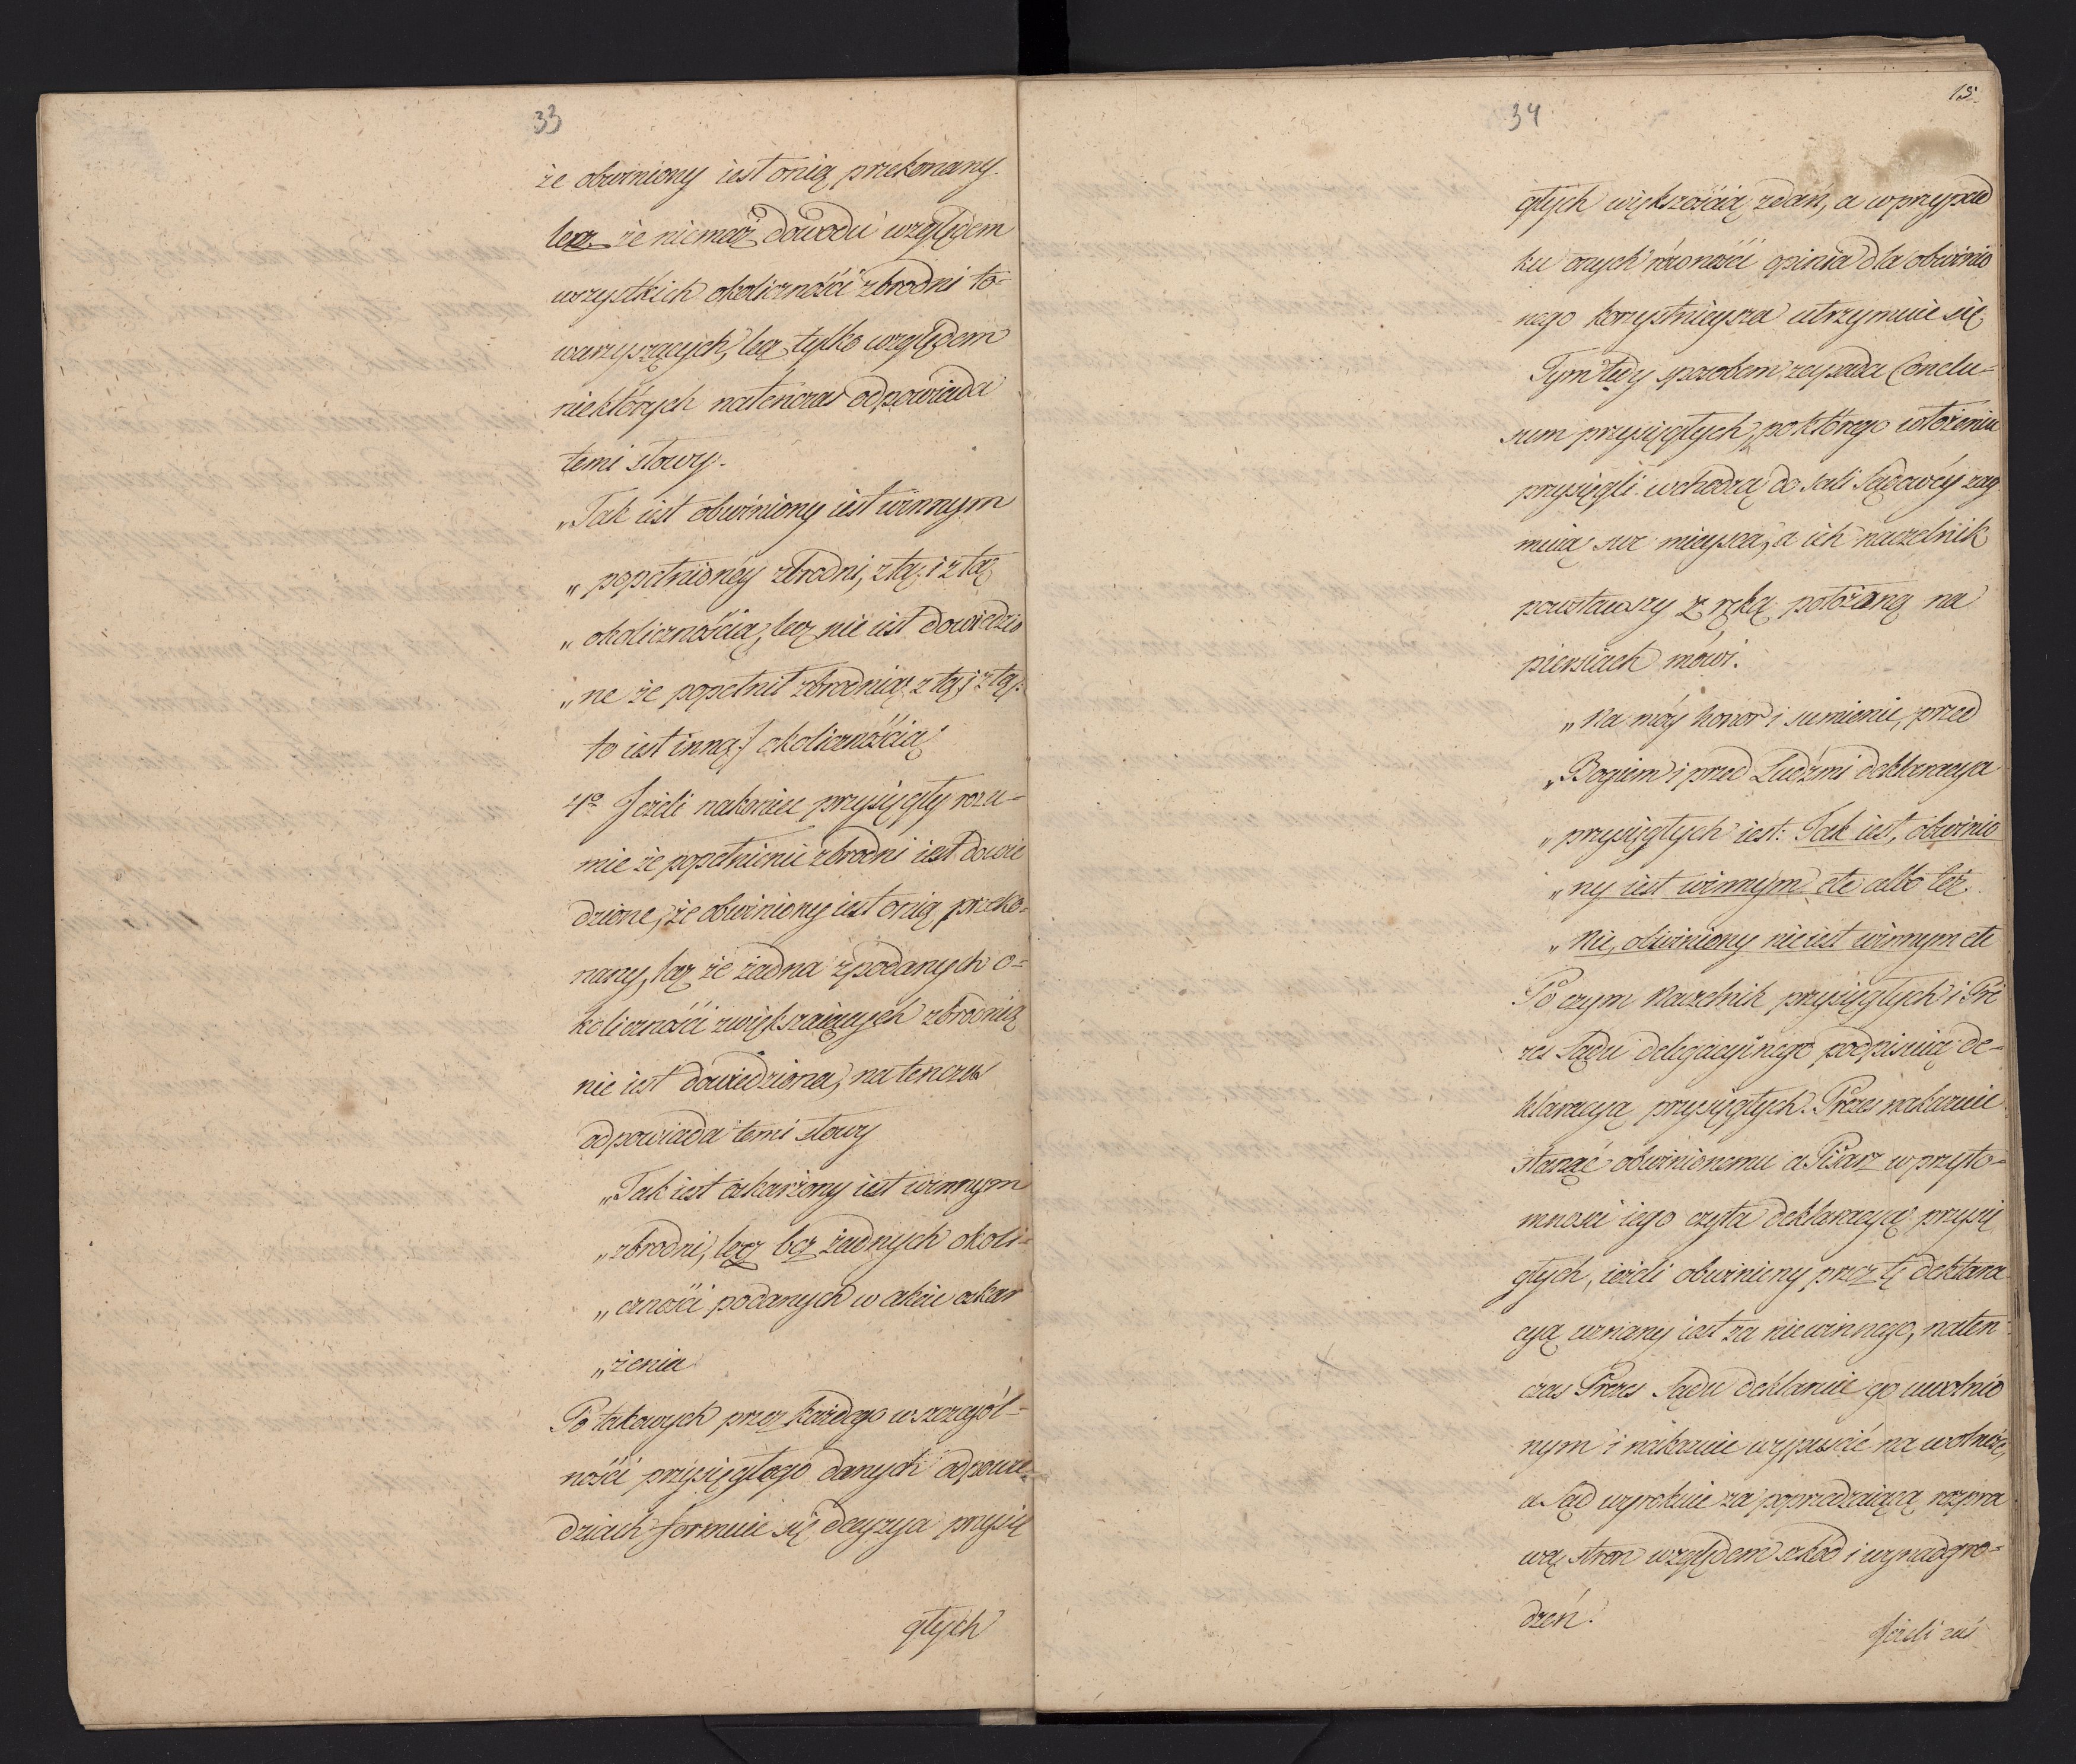 33
że obwiniony iest onią przekonany
lecz że niemasz dowodu względem
wszystkich okoliczności zbrodni to-
warzyszących, lecz tylko względem
niektórych natenczas odpowiada
temi słowy.
„Tak iest obwiniony iest winnym
„popełnionéy zbrodni, z tą i z tą
„okolicznością, lecz nie iest dowiedzio
„ne że popełnił zbrodnią z tą i z tą
to iest inną / okolicznością
4o Jeżeli nakoniec przysięgły rozu-
mie że popełnienie zbrodni iest dowie
dzione, że obwiniony iest onią przeko-
nany, lecz że żadna z podanych o-
koliczności zwiększaiących zbrodnią
nie iest dowiedziona, natenczas
odpowiada temi słowy
„Tak iest oskarżony iest winnym
„zbrodni, lecz bez żadnych okoli-
„czności podanych w akcie oskar
„żenia
Po takowych przez każdego wszczegól-
ności przysięgłego danych odpowie-
dziach formuie się decyzya przysię
głych
15.
34
głych większością zdań, a wprzypad
ku onych równości opinia dla obwinio
nego korzystnieysza utrzymuie się.
Tym tedy sposobem zapada Conclu-
sum przysięgłych, po którego ułożeniu
przysięgli wchodzą do Sali Sądowéy zay
muią swe mieysca, a ich naczelnik
powstawszy z ręką położoną na
piersiach mówi.
„Na móy honor i sumienie, przed
„Bogiem i przed Ludźmi deklaracya
„przysięgłych iest: Tak iest, obwinio
„ny iest winnym etc albo też.
„Nie, obwiniony nie iest winnym etc
Po czym Naczelnik przysięgłych i Pre
zes Sądu delegacyinego podpisuią de-
klaracyą przysięgłych. Prezes nakazuie
stanąć obwinionemu a Pisarz w przyto-
mności iego czyta deklaracyą przysię
głych, ieżeli obwiniony przez tę deklara
cyą uznany iest za niewinnego, naten
czas Prezes Sądu deklaruie go uwolnio
nym i nakazuie wypuścić na wolność,
a Sąd wyrokuie za poprzedzaiącą rozpra
wą stron względem szkód i wynadgro-
dzeń.
Jeżeli zaś